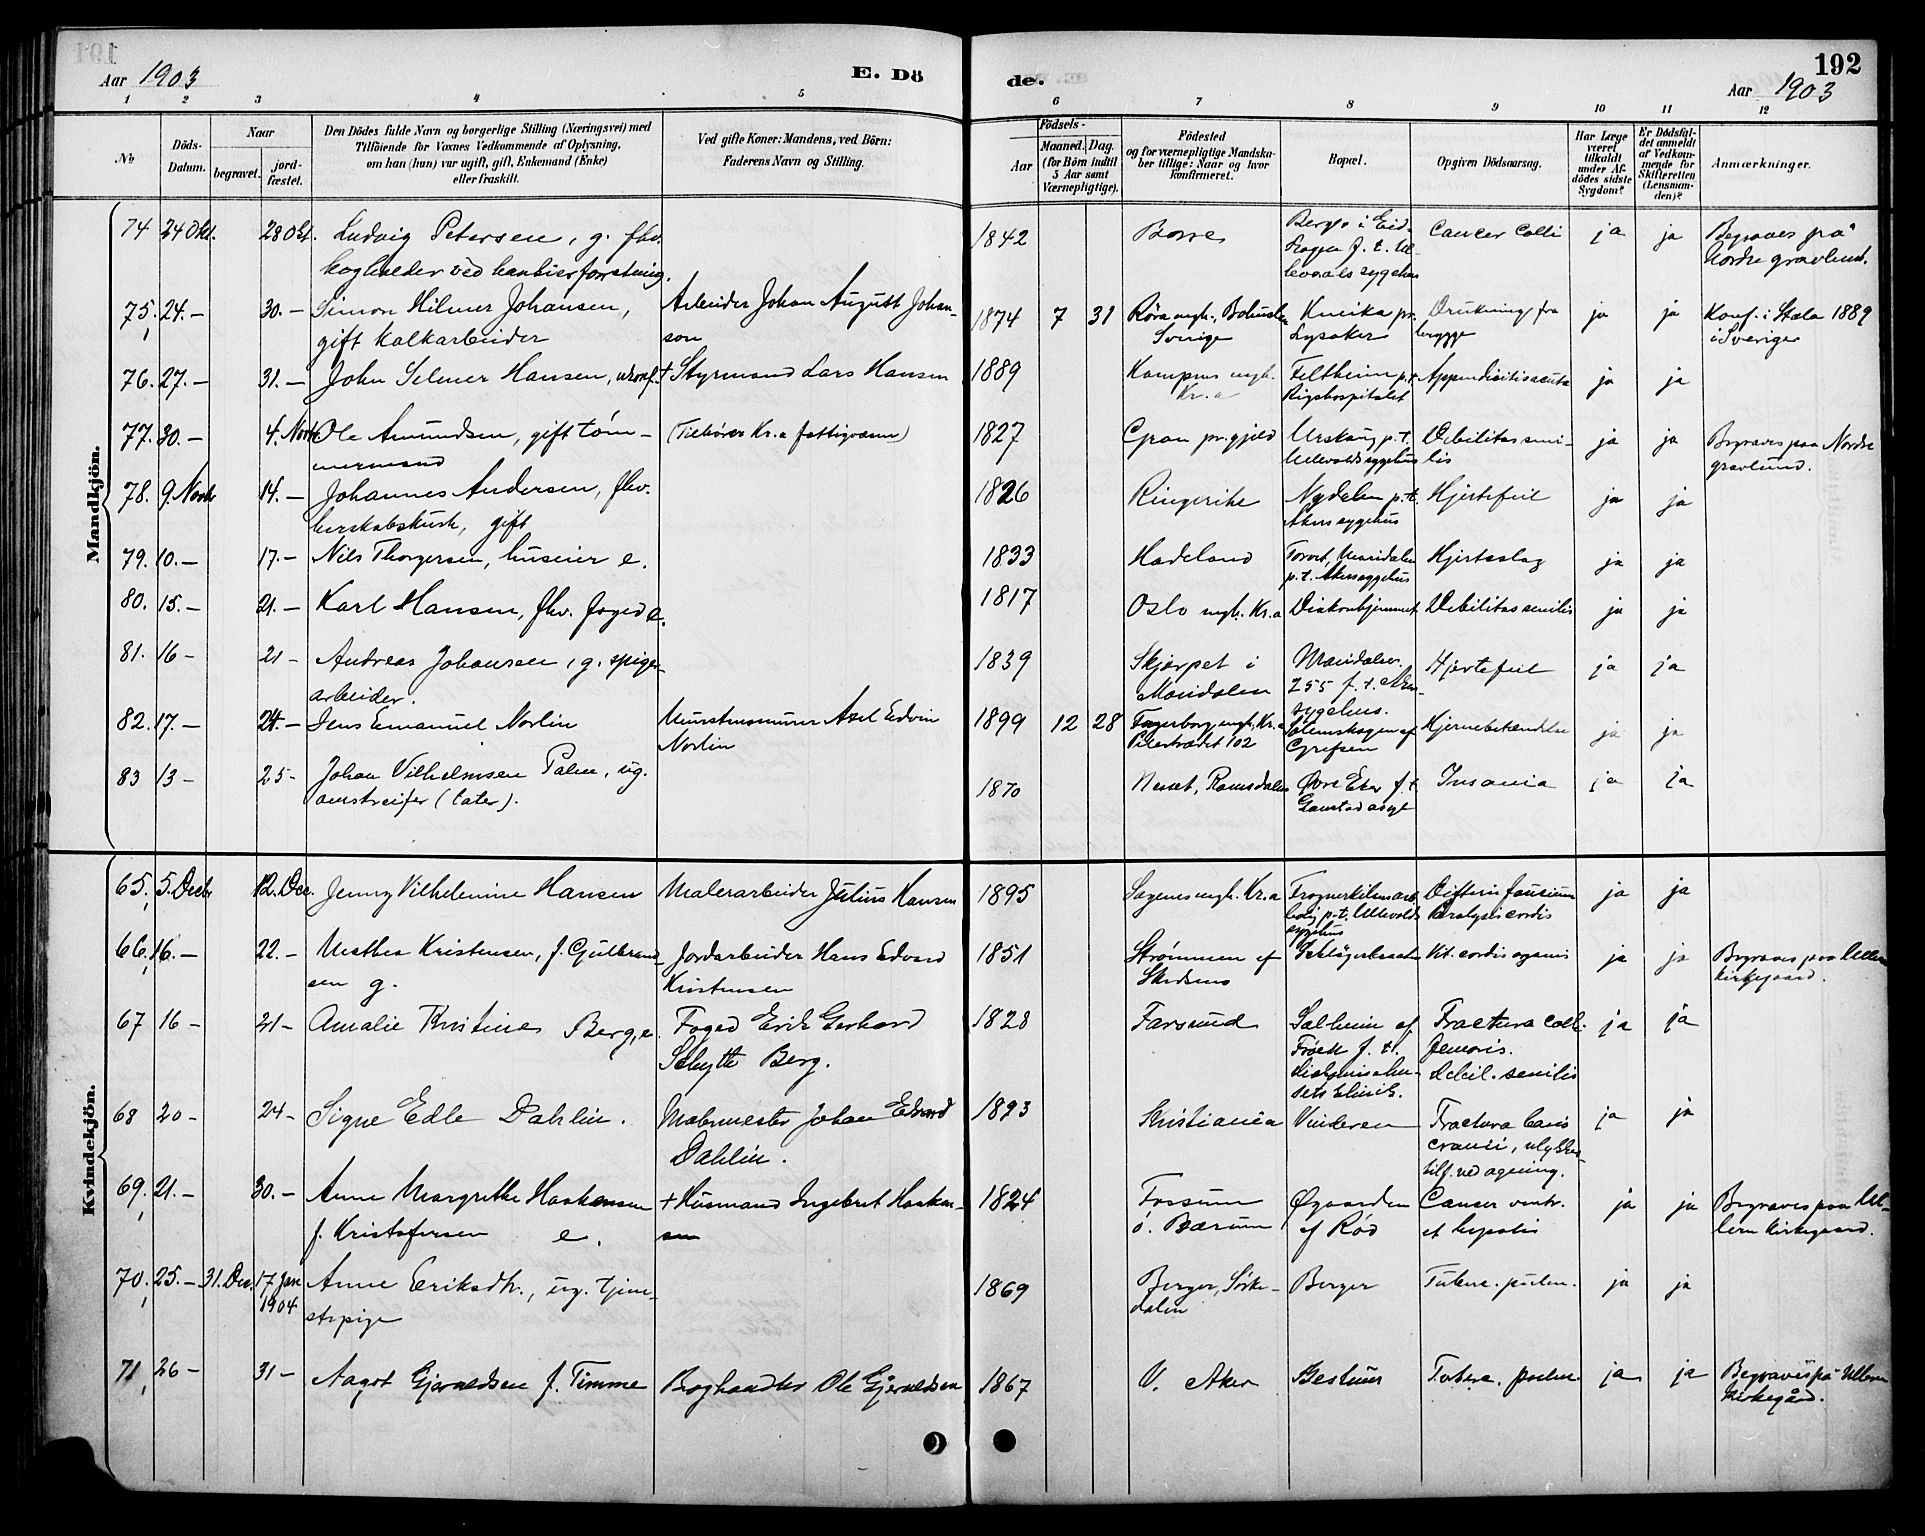 Aar 1903
E. Dö
de.
192
Aar 1903
1 2 3 4 5 6 7 8 9 10 11 12
No
Döds-Datum.
Naar
begravet.
jord-fæstet.
Den Dödes fulde Navn og borgerlige Stilling (Næringsvei) med
Tilföiende for Voxnes Vedkommende af Oplysning,
om han (hun) var ugift, gift, Enkemand (Enke)
eller fraskilt.
Ved gifte Koner: Mandens, ved Börn:
Faderens Navn og Stilling.
Födsels-
Aar
Maaned. Dag.
(for Börn indtil
5 Aar samt
Værnepligtige).
Födested
og for værnepligtige Mandska-
ber tillige: Naar og hvor
konfirmeret.
Bopæl.
Opgiven Dödsaarsag.
Har Læge
været
tilkaldt
under Af-
dödes sidste
Sygdom?
Er Dödsfal-
det anmeldt
af Vedkom-
mende for
Skifteretten
(Lensman-
den)?
Anmærkninger.
Mandkjön.
74 24 Okt. 28 Okt. Ludvig Petersen, g. fhv. 1842 Borre Cancer Colli ja ja Begraves på
Nordre gravlund.
75, 24.- 30.- Simon Hilmer Johansen, Arbeider Johan August Johan- 1874 7 31 Röra Sverige Lysaker Drukning fra brygge ja ja Konf. i Stala 1889
gift kalkarbeider son i Sverige
76. 27.- 31.- John Selmer Hansen, ukonf. + Styrmand Lars Hansen 1889 Kampens mgh. Kr.a Feltheim p.t. Rigshospitalet Appendicitis acuta ja ja
77. 30.- 4. Novbr Ole Amundsen, gift töm- (Tilhörer Kr.a fattigvæsen) 1827 Gran pr.gjeld Urskoug p.t. Ullevolds sygehus Debilitas seni- ja ja Begraves paa Nordre
mermand lis gravlund.
78. 9. Novbr 14.- Johannes Andersen, fhv. 1826 Ringerike Nydalen p.t. Akers sygehus Hjertefeil ja ja
herskabskusk, gift
79. 10.- 17.- Nils Thorgersen, huseier e. 1833 Hadeland Maridalen p.t. Akers sygehus Hjerteslag ja ja
80. 15.- 21.- Karl Hansen, fhv. foged e. 1817 Oslo mgh. Kr.a Diakonhjemmet Debilitas senilis ja ja
81. 16- 21- Andreas Johansen, g. spiger- 1839 Skjærpet i Maridalen Maridalen 255 p.t. Akers sygehus. Hjertefeil ja ja
arbeider.
82. 17.- 24.- Jens Emanuel Norlin Murstensmurer Axel Edvin 1899 12 28 Fagerborg mgh. Kr.a Grefsen Hjernebetændelse ja ja
Norlin Pilestrædet 102
83 13- 25- Johan Vilhelmsen Palm, ug. 1870 Nesset, Romsdalen Øvre Eker p.t. Gaustad asyl Insania ja ja
omstreifer (tater).
Kvindekjön.
65, 5. Decbr 12. Dec. Jenny Vilhelmine Hansen Malerarbeider Julius Hansen 1895 Sagenes mgh. Kr.a Frognerkilens p.t. Ullevolds sygehus Difteri faucium ja ja
Paralysis cordis
66, 16.- 22.- Mathea Kristensen, f. Gulbrand- Jordarbeider Hans Edvard 1851 Strømmen af Skedsmo Vit. cordis organis ja ja Begraves paa Ullern
sen g. Kristensen kirkegaard.
67 16- 21- Amalie Kristine Berg, e. Foged Erik Gerhard 1828 Farsund Solheim af Fröen p.t. Fractura coll. ja ja
Schytte Berg. femoris.
Debil. senilis
68 20- 24- Signe Edle Dahlin. Malermester Johan Edvard 1893 Kristiania Vinderen Fractura basis ja ja
Dahlin. cranii, ulykkes-
tilf. ved agening.
69, 21.- 30.- Anne Margrethe Haakensen + Husmand Ingebret Haaken- 1824 Fossum Øgaarden Cancer ventr. ja ja Begraves paa Ul-
f. Kristofersen e. sen ö. Bærum af Röd et hepatis lern kirkegaard.
70, 25.- 31. Dec. 17. Jan 1904 Anne Eriksdtr., ug. tjene- 1869 Berger, Sörke- Berger Tuberc. pulm. ja ja
stepige dalen
71, 26- 31- Aagot Gjeruldsen f. Timme Boghandler Ole Gjeruldsen 1867 V. Aker Bestum Tuberc. pulm. ja ja Begraves på Ullern
kirkegård.